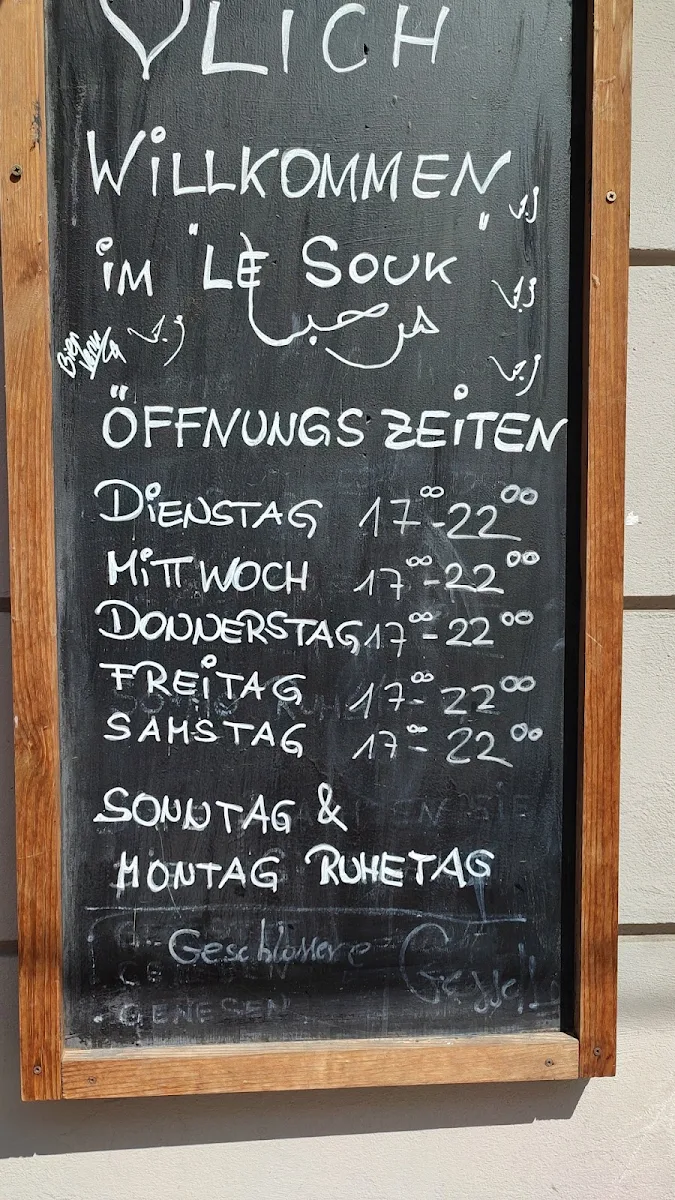 ♡LICH
WiLLKOMMEN
iM "LE SOUK"
مرحبا
ÖFFNUNGSZEiTEN
DiENSTAG 17⁰⁰-22⁰⁰
MiTTWOCH 17⁰⁰-22⁰⁰
DONNERSTAG 17⁰⁰-22⁰⁰
FREiTAG 17⁰⁰-22⁰⁰
SAMSTAG 17⁰⁰-22⁰⁰
SONNTAG &
MONTAG RUHETAG
GENESEN